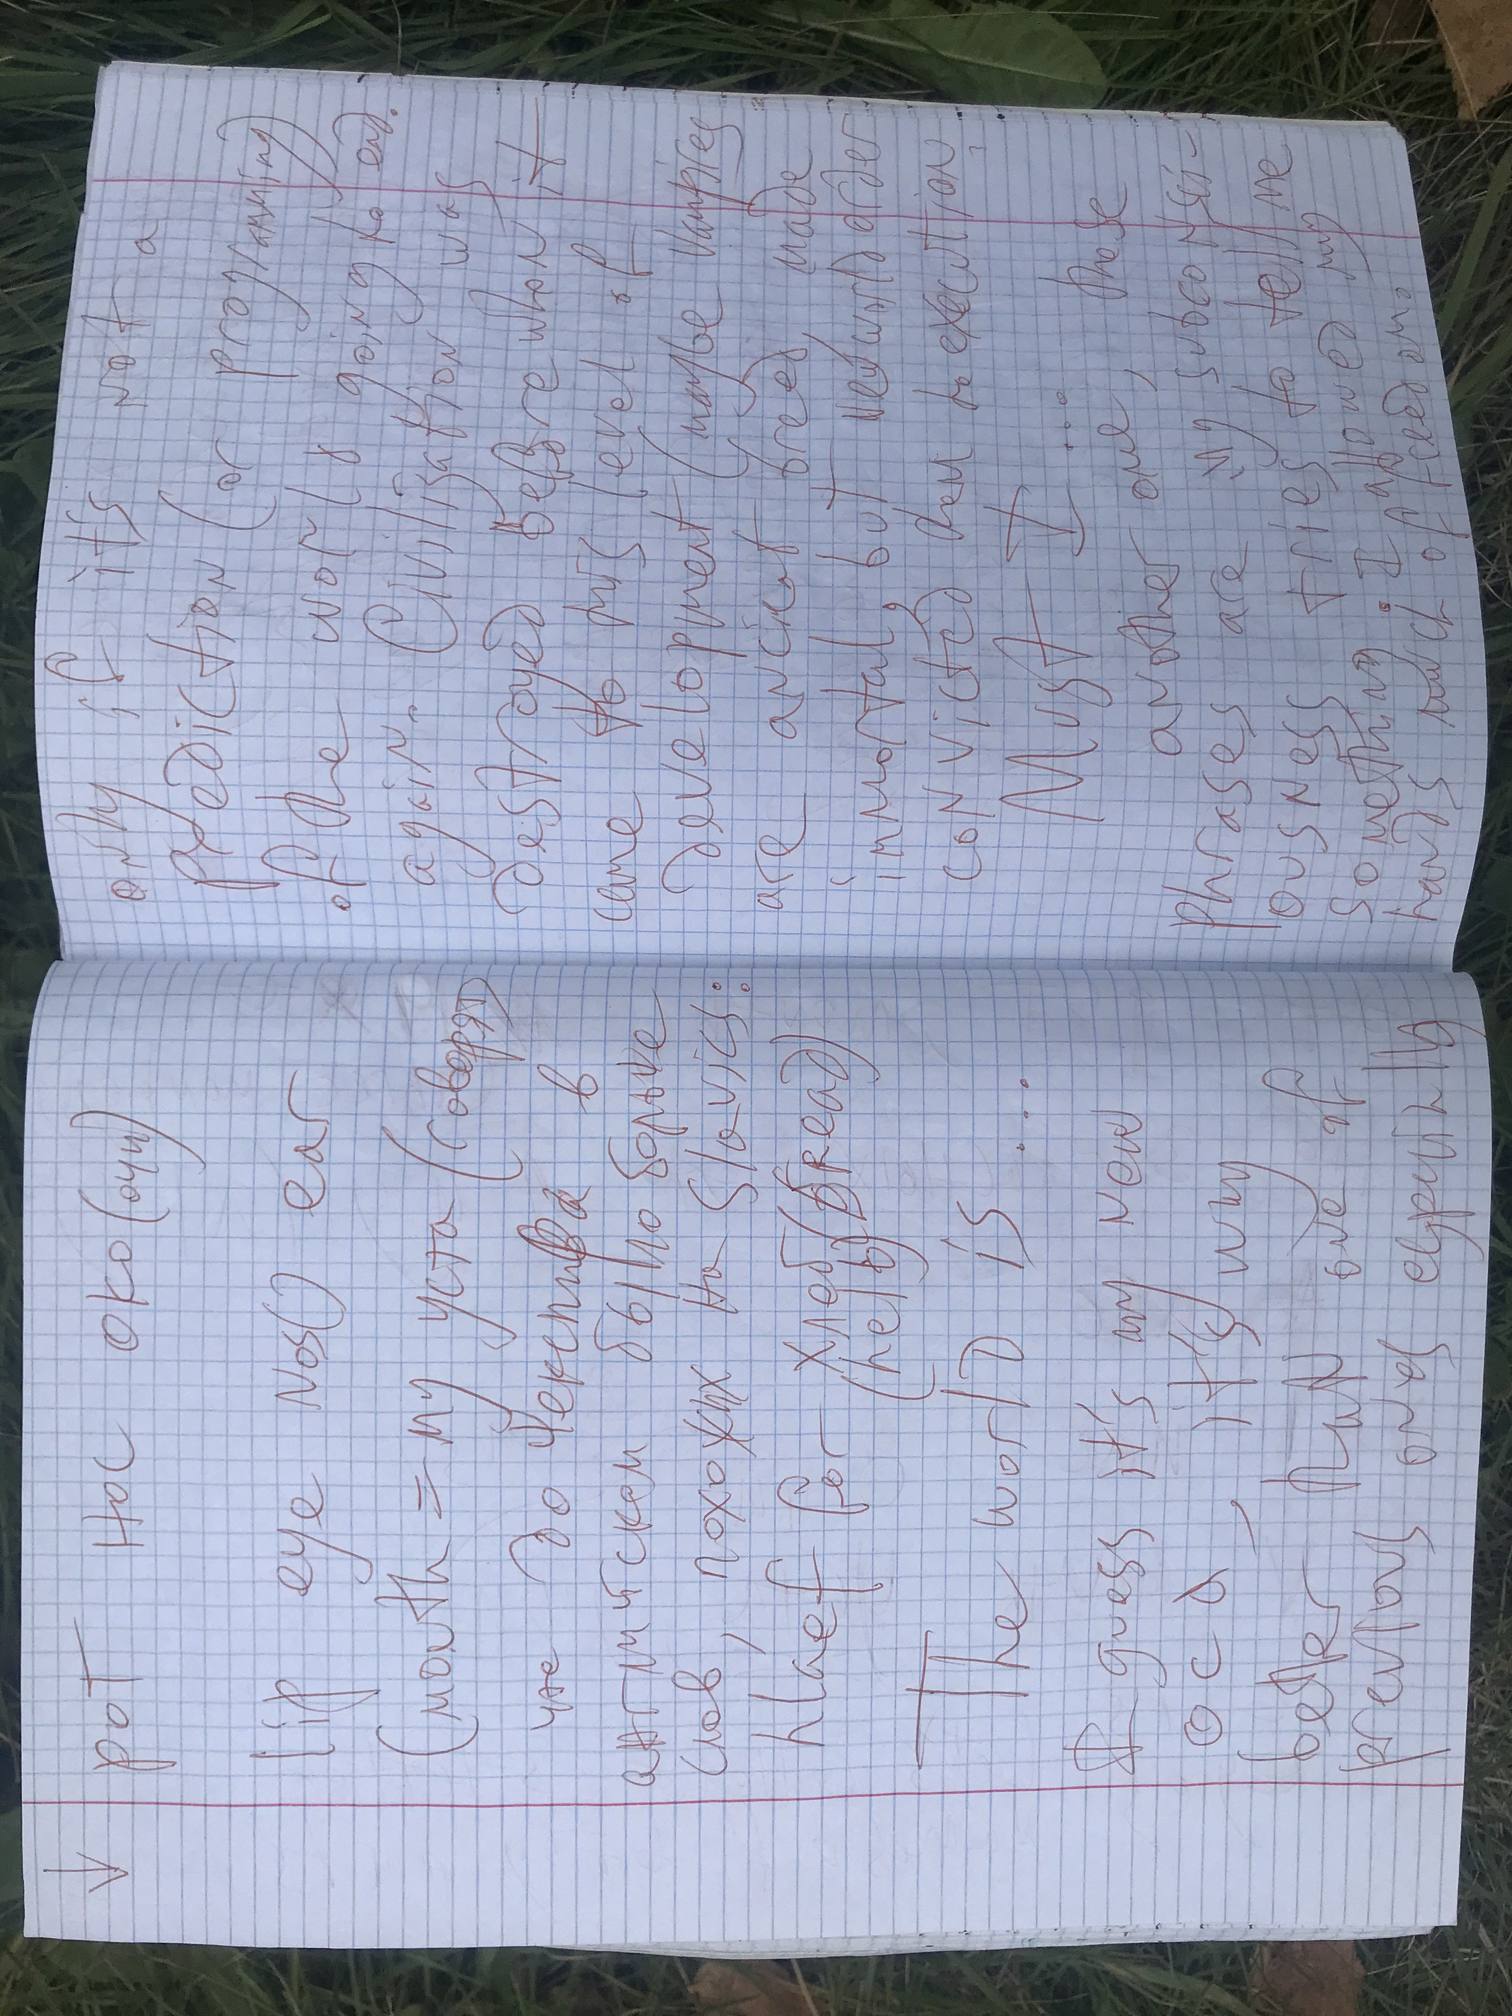 ↓ рот нос око (очи)
lip eye nos() ear
(mouth = my уста (говорят
что до Чекспива в
английском было больше
слов, похожих на slavics:
hlaef for хлеб (bread)
(helb)
The world is ...
I guess it's my new
ocd, it's why
better than one of
previous ones especially
only if it's not a
prediction (or programming)
of the world is going to end.
again. Civilisation was
destroyed before when it
came to this level of
development (maybe vampires
are ancient breed made
immortal, but new world order
convicted them to execution;
Must I ... these
another one, these
phrases are my subconsi-
ousness tries to tell me
something. I allowed my
hands much of freedom.